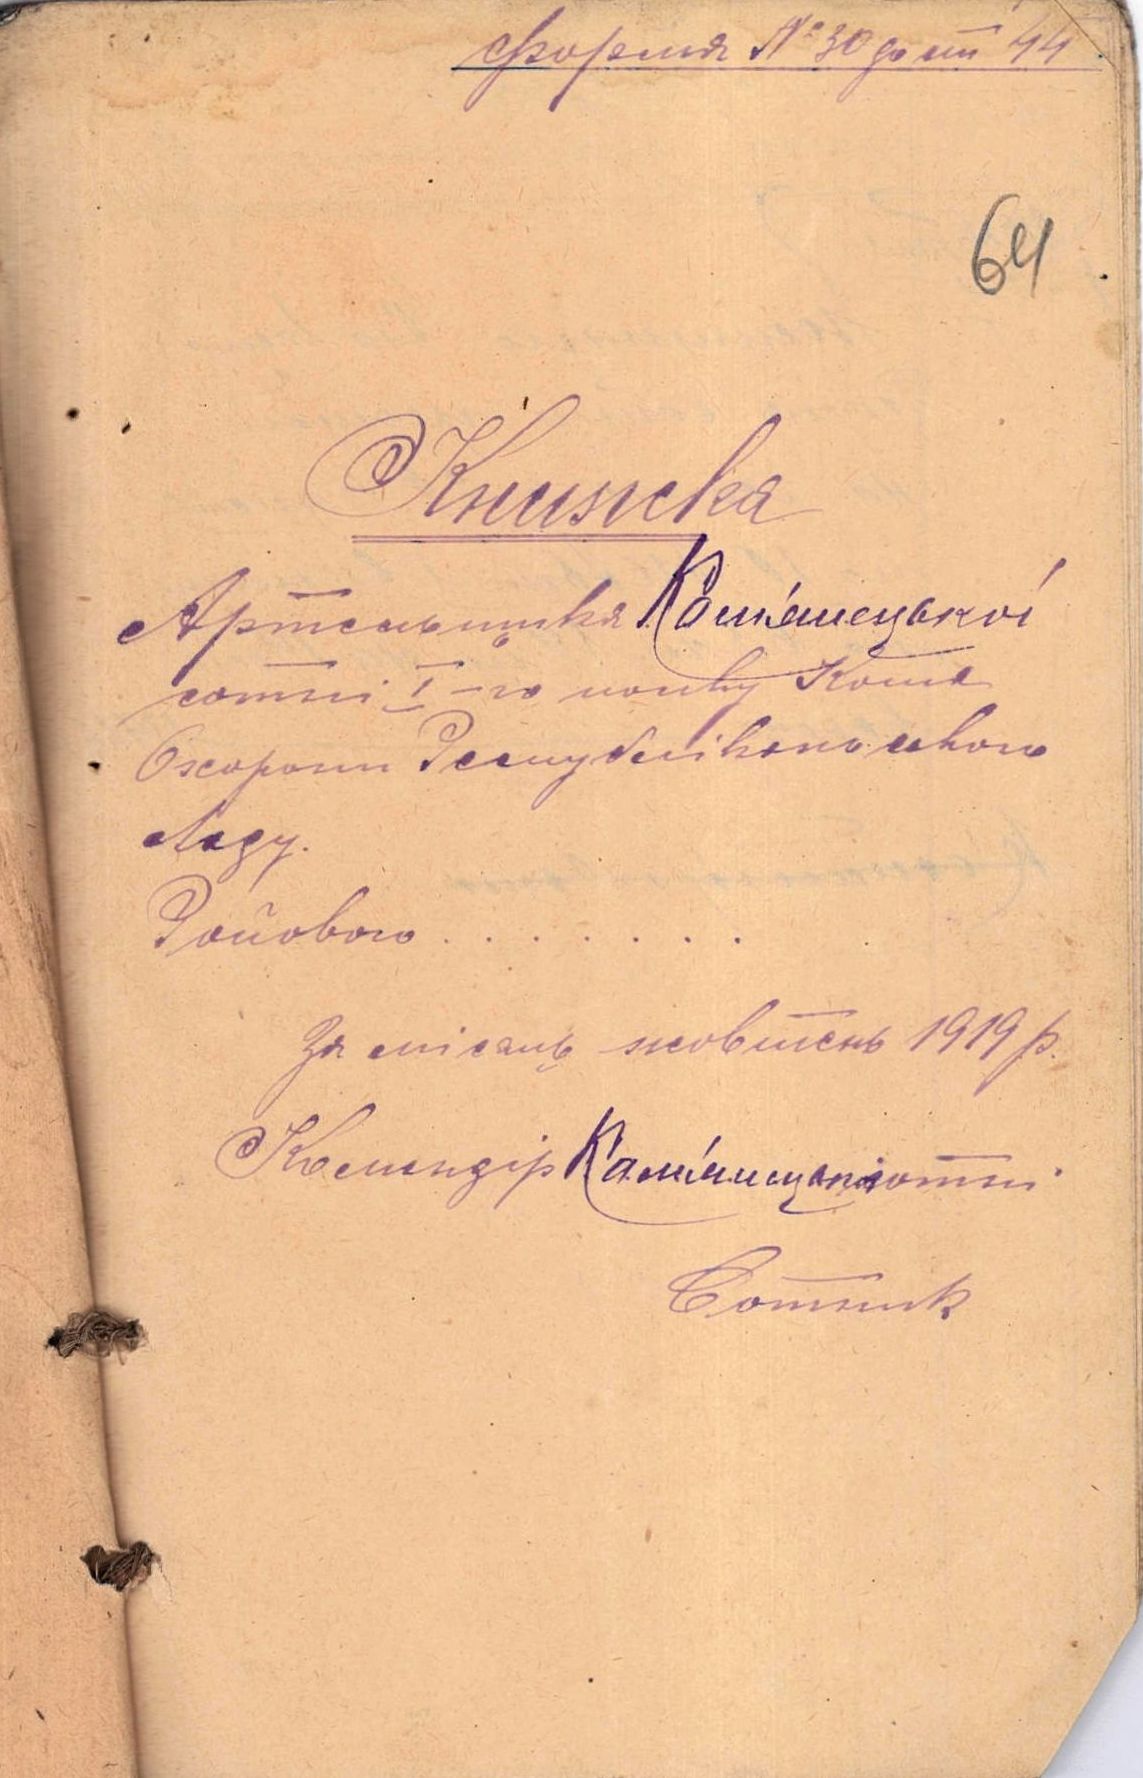 Форма № 30 до ст 44
64
Книжка
Артельщика Кам'янецької
сотні I-го полку Коша
Охорони Республіканського
Ладу.
Ройового . . . . . . . .
За місяць жовтень 1919 р.
Командір Кам'янецької сотні
Сотник